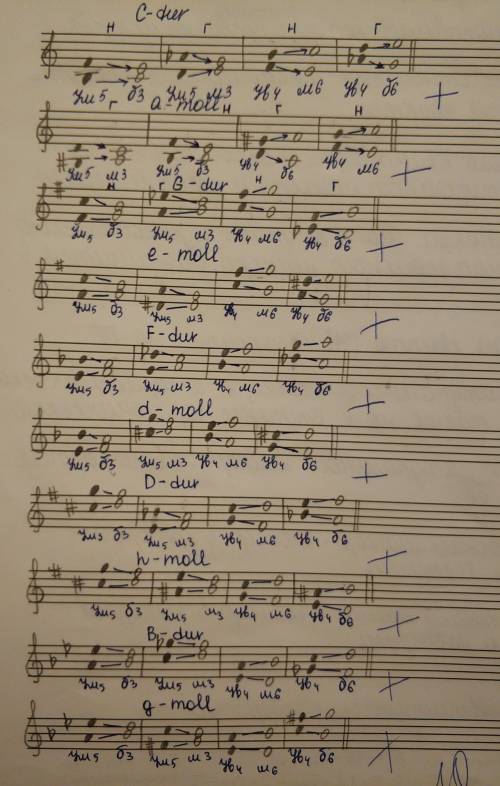 C-dur
н г н г
ум5 б3 ум5 м3 ув4 м6 ув4 б6 +
г a-moll н г н
ум5 м3 ум5 б3 ув4 б6 ув4 м6 +
н г G-dur н г
ум5 б3 ум5 м3 ув4 м6 ув4 б6 +
e-moll
ум5 б3 ум5 м3 ув4 м6 ув4 б6 +
F-dur
ум5 б3 ум5 м3 ув4 м6 ув4 б6 +
d-moll
ум5 б3 ум5 м3 ув4 м6 ув4 б6 +
D-dur
ум5 б3 ум5 м3 ув4 м6 ув4 б6 +
h-moll
ум5 б3 ум5 м3 ув4 м6 ув4 б6 +
B-dur
ум5 б3 ум5 м3 ув4 м6 ув4 б6 +
g-moll
ум5 б3 ум5 м3 ув4 м6 ув4 б6 +